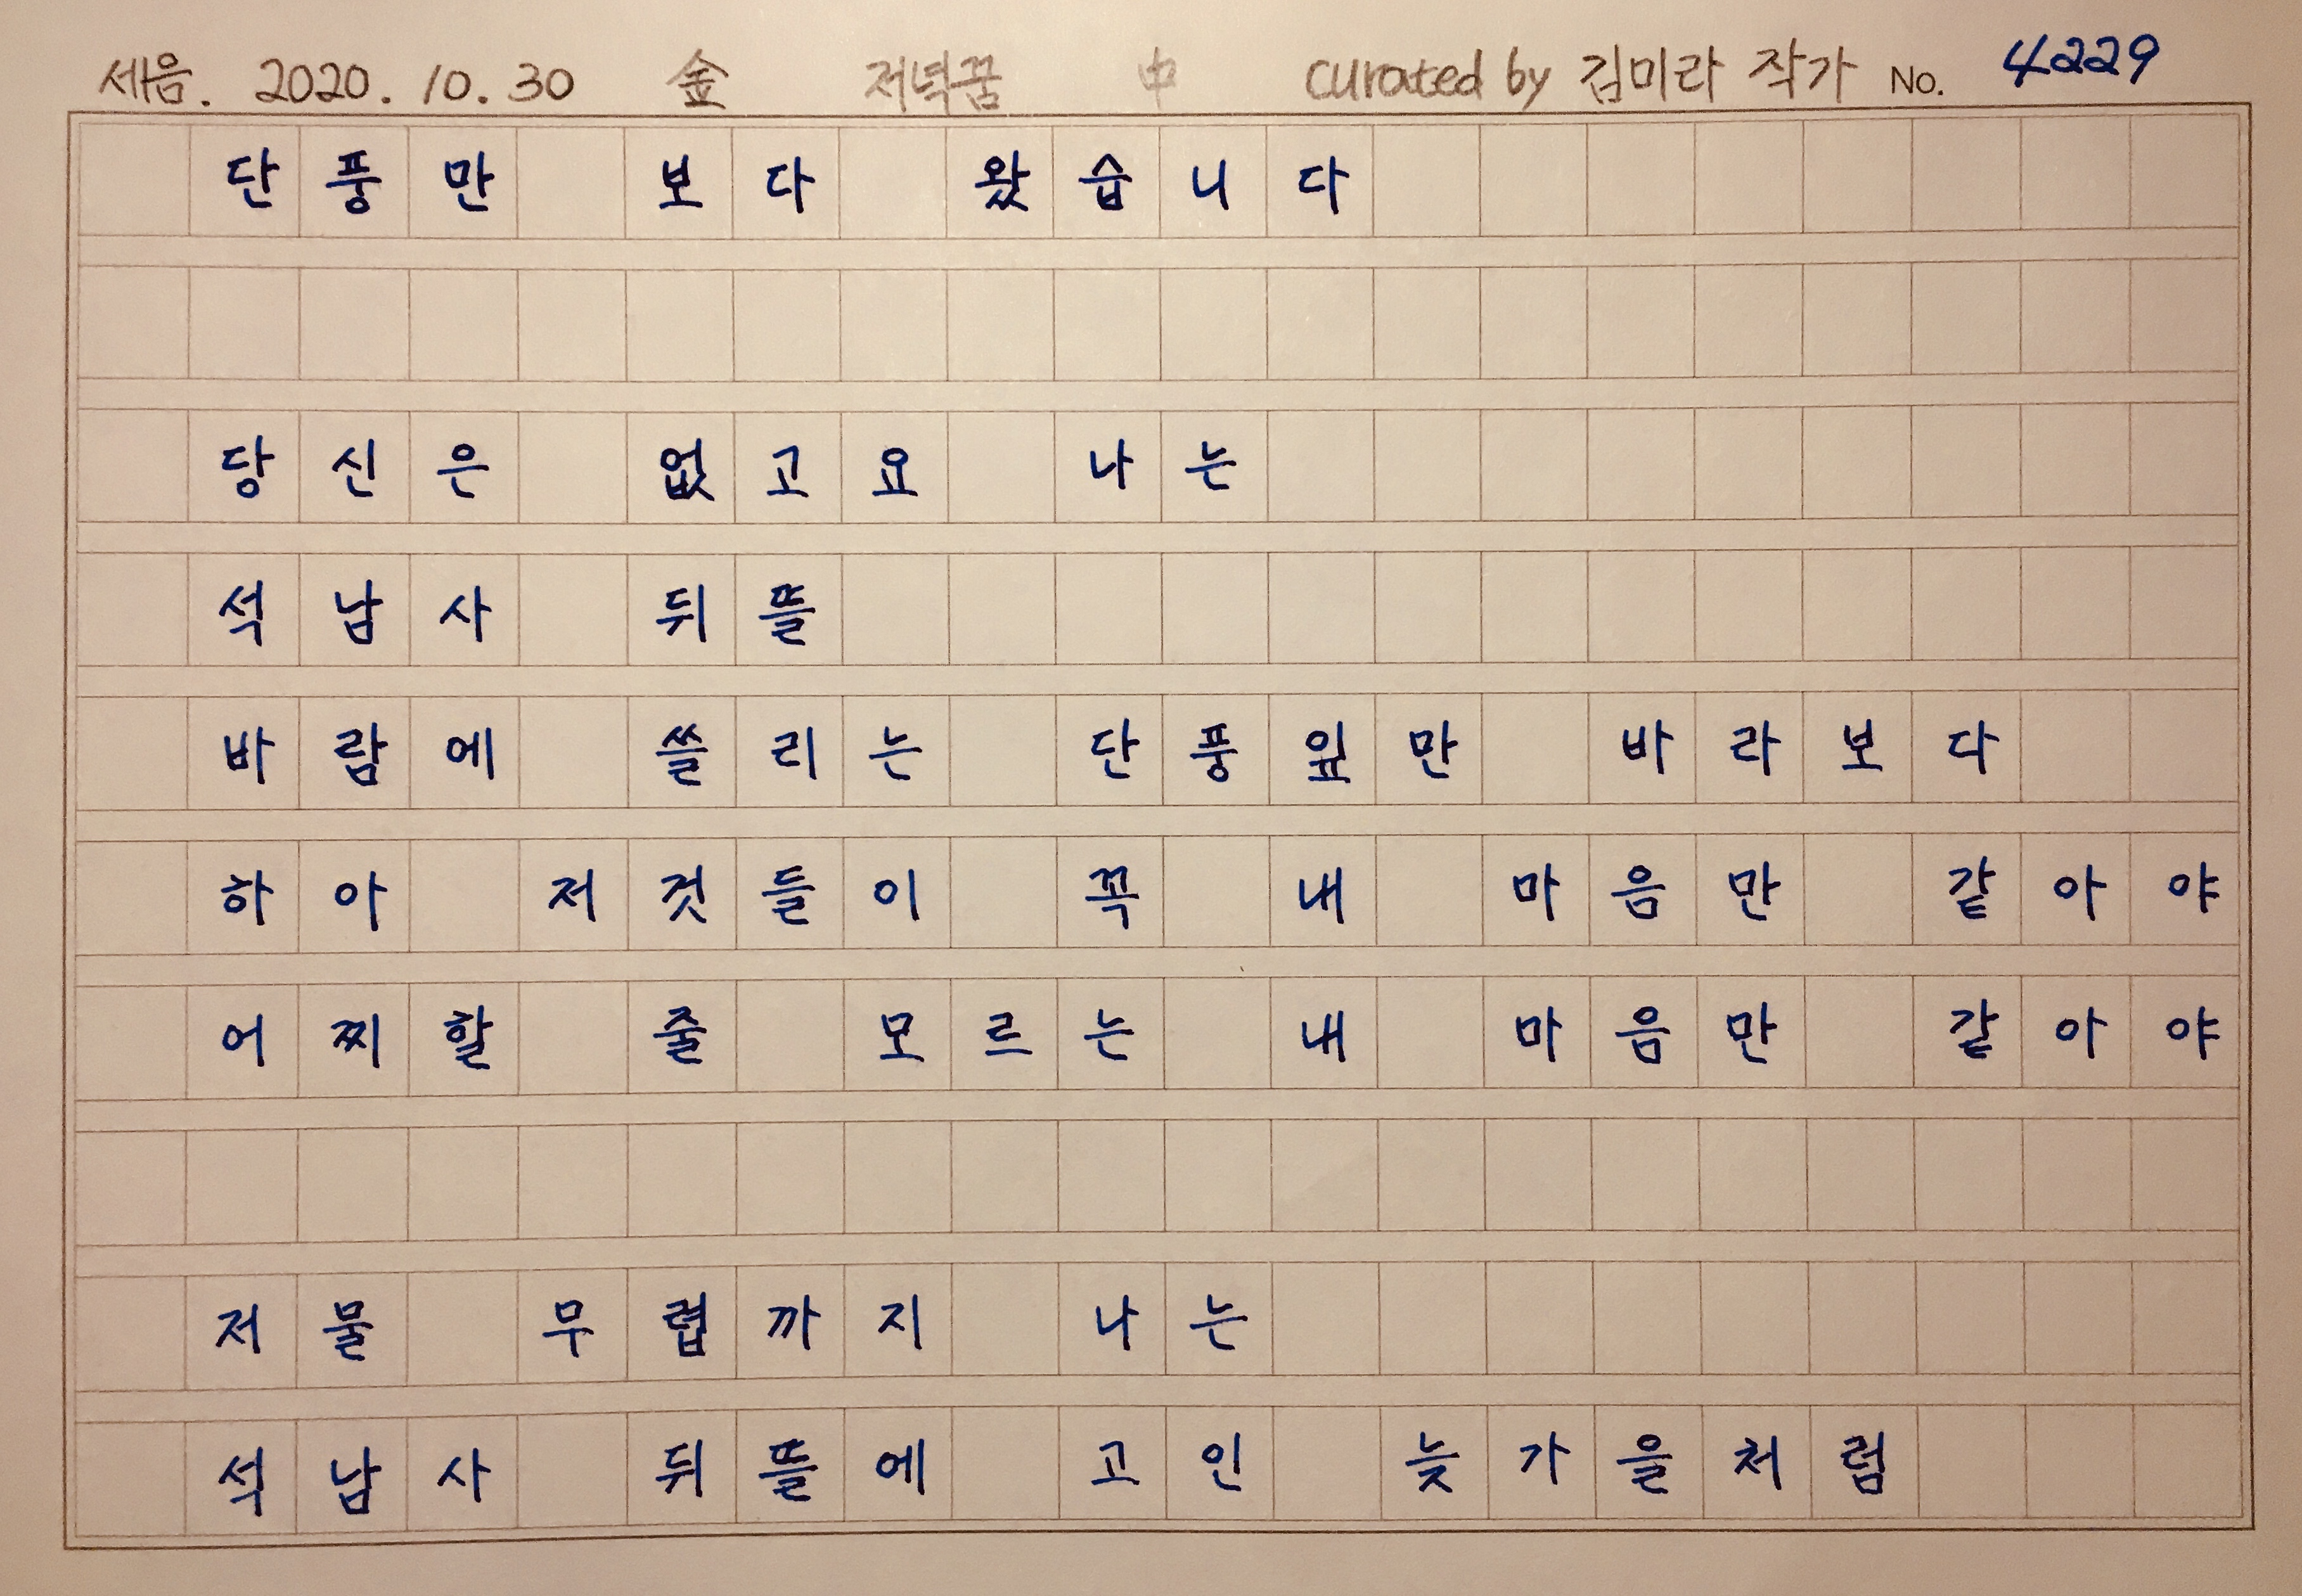 세음. 2020. 10. 30 金 저녁꿈 中 curated by 김미라 작가 No. 4229
단풍만 보다 왔습니다
당신은 없고요 나는
석남사 뒤뜰
바람에 쓸리는 단풍잎만 바라보다
하아 저것들이 꼭 내 마음만 같아야
어찌할 줄 모르는 내 마음만 같아야
저물 무렵까지 나는
석남사 뒤뜰에 고인 늦가을처럼